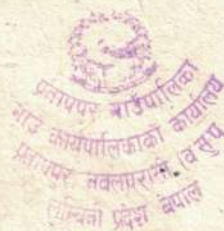 प्रतापपुर गाउँपालिका
गाउँ कार्यपालिकाको कार्यालय
प्रतापपुर नवलपरासी (ब सु प)
लुम्बिनी प्रदेश नेपाल